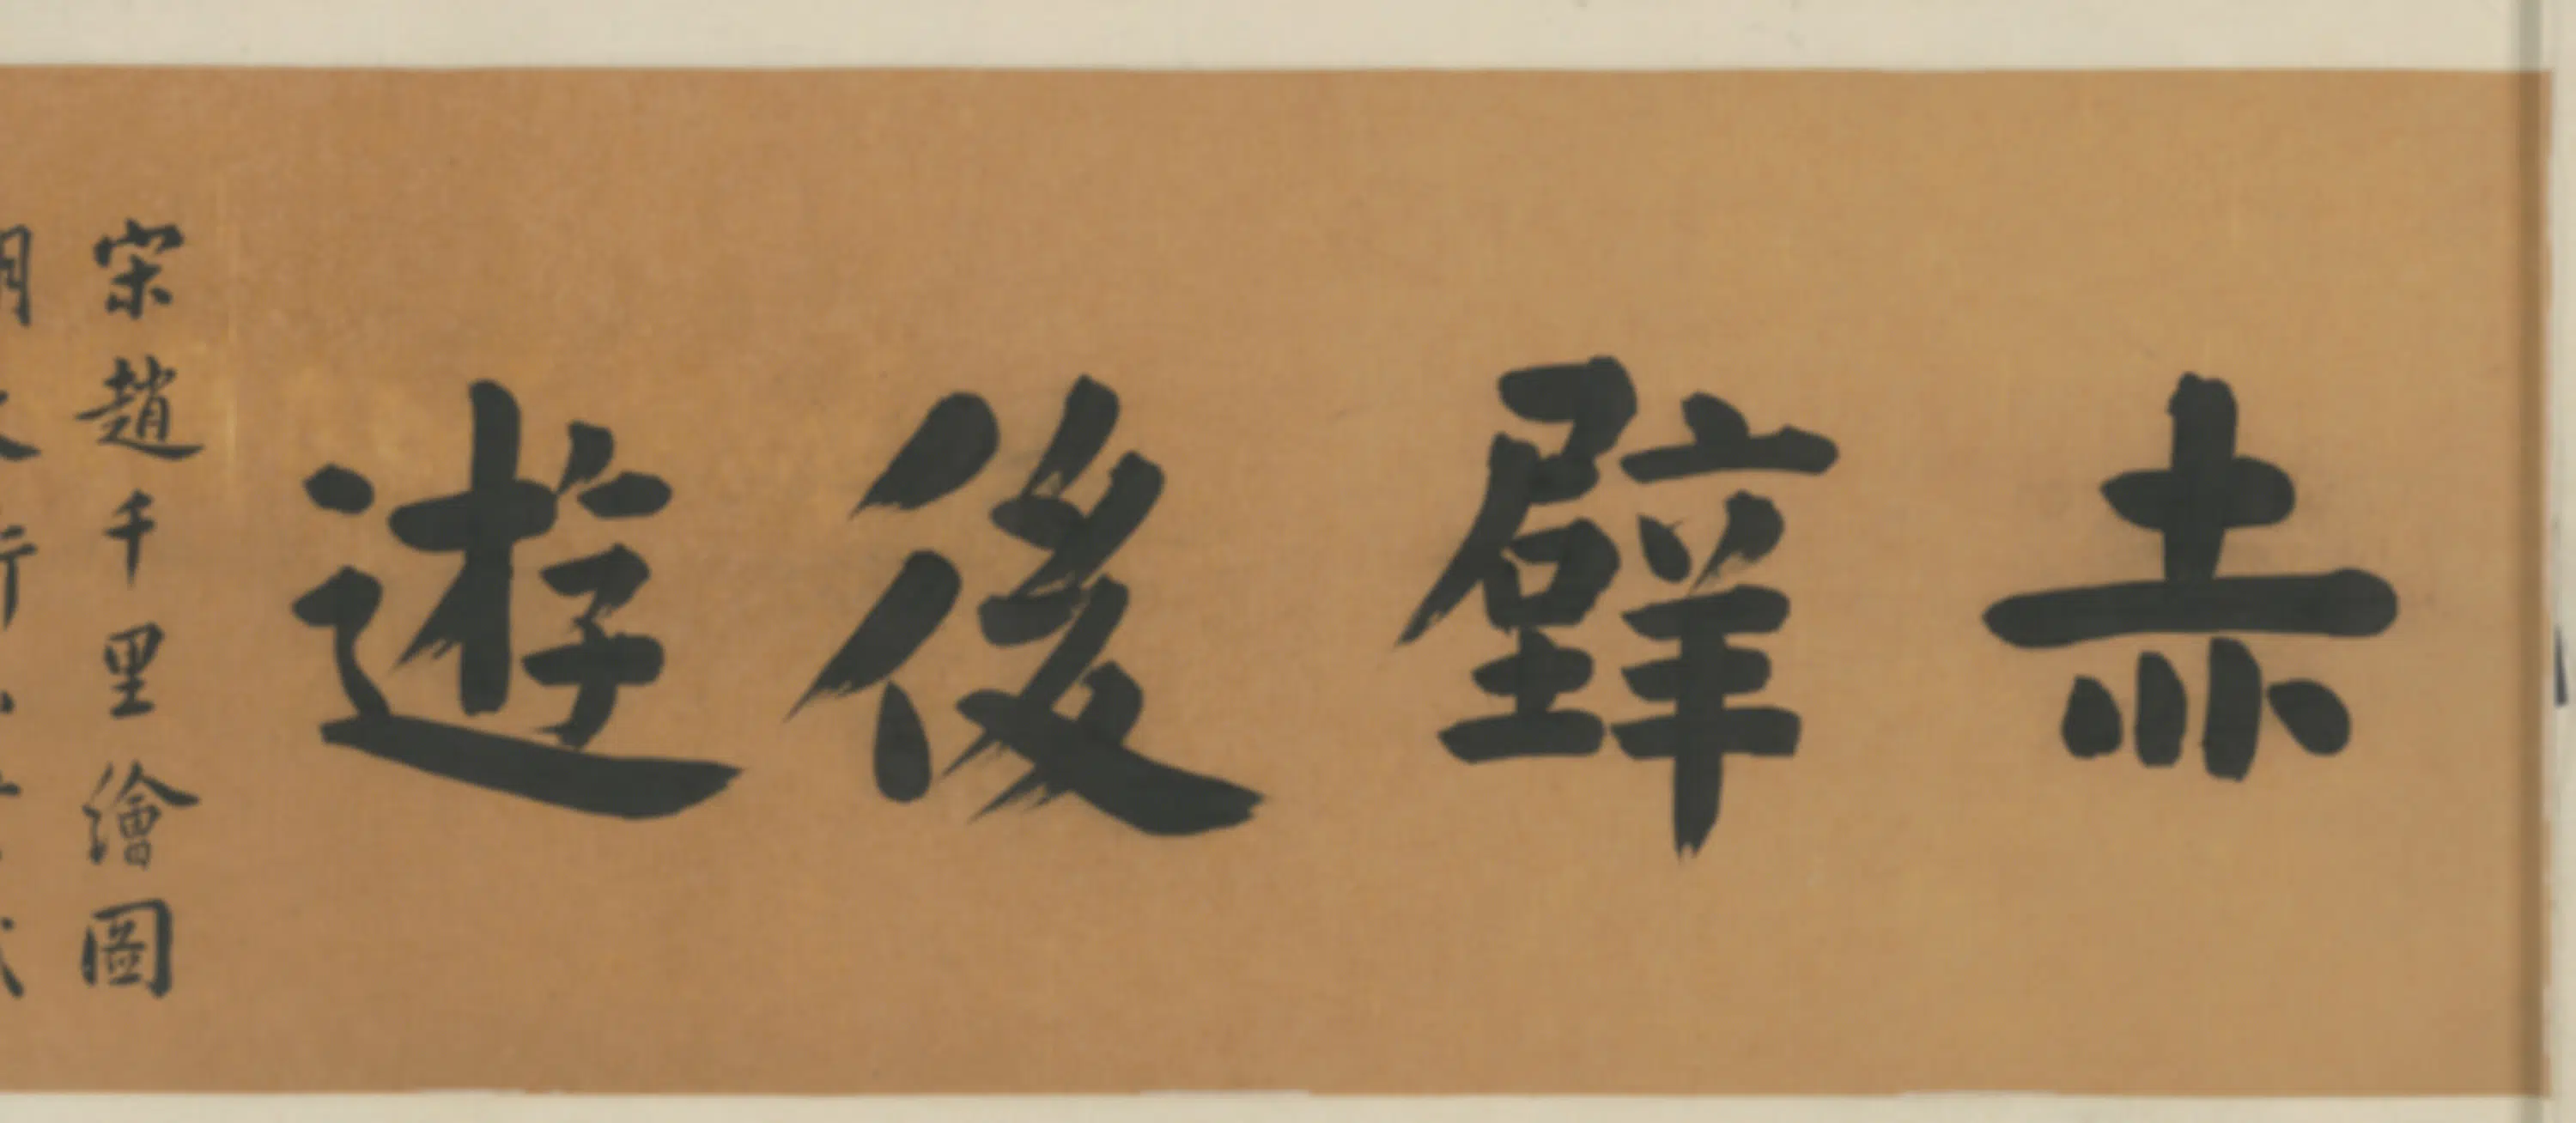 赤壁後遊
宋趙千里繪圖